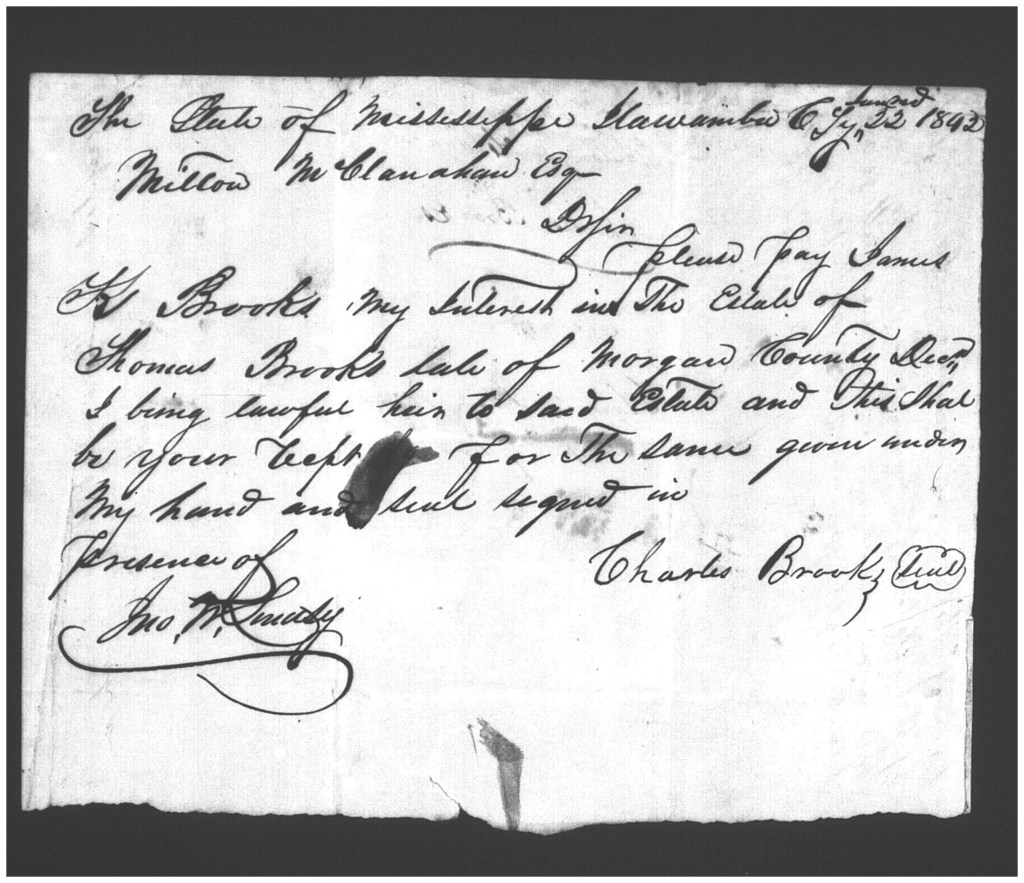 The State of Mississippi Itawamba Cty June 22nd 1842
Milton McClanahan Esq
D Sir
please pay James
Brooks my Interest in The Estate of
Thomas Brooks late of Morgan County Decd
I being lawful heir to said Estate and This Shal
be your Recpt for The same given under
My hand and seal signed in
presence of
Charles Brooks Seal
Jno. W.